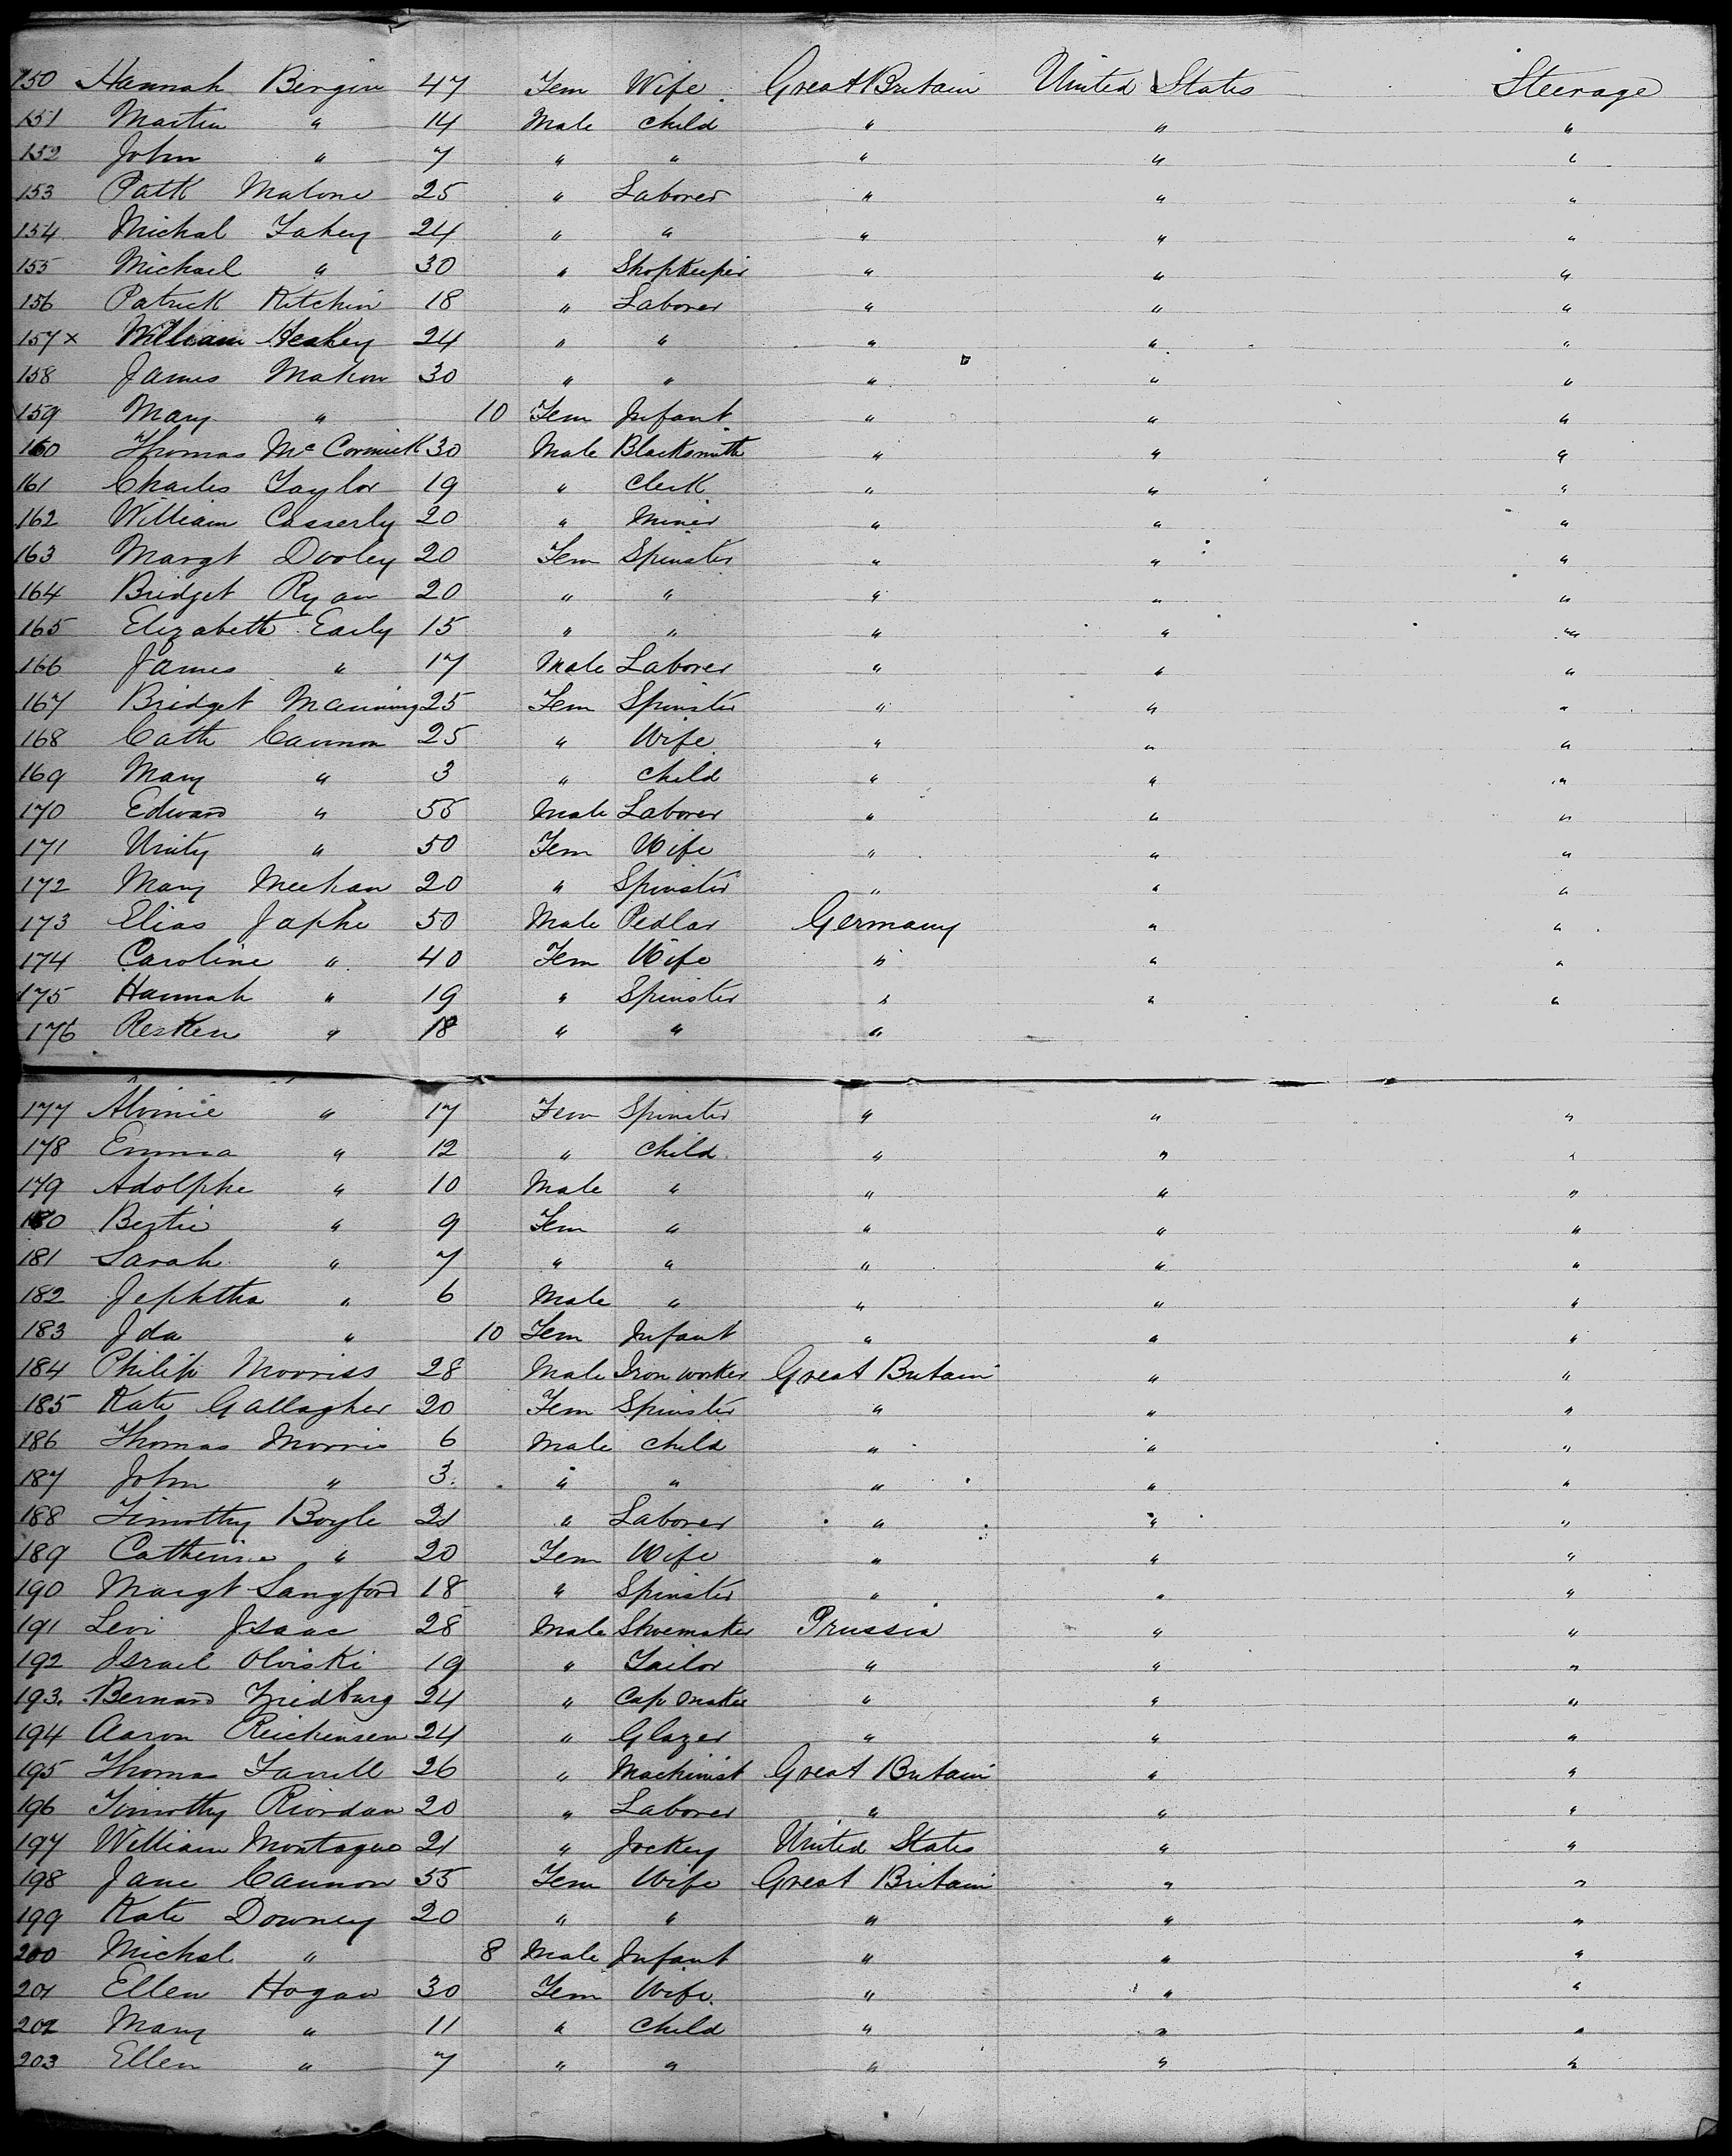 150 Hannah Bergin 47 Fem Wife Great Britain United States Steerage
151 Martin " 14 Male Child " " "
152 John " 7 " " " " "
153 Patk Malone 25 " Laborer " " "
154 Michal Fahey 24 " " " " "
155 Michael " 30 " Shopkeeper " " "
156 Patrick Kitchin 18 " Laborer " " "
157 x William Heahey 24 " " " " "
158 James Mahon 30 " " " " "
159 Mary " 10 Fem Infant " " "
160 Thomas McCormick 30 Male Blacksmith " " "
161 Charles Taylor 19 " Clerk " " "
162 William Casserly 20 " Miner " " "
163 Margt Dooley 20 Fem Spinster " " "
164 Bridget Ryan 20 " " " " "
165 Elizabeth Early 15 " " " " "
166 James " 17 Male Laborer " " "
167 Bridget Manning 25 Fem Spinster " " "
168 Cath Cannon 25 " Wife " " "
169 Mary " 3 " Child " " "
170 Edward " 55 Male Laborer " " "
171 Unity " 50 Fem Wife " " "
172 Mary Meehan 20 " Spinster " " "
173 Elias Japhe 50 Male Pedlar Germany " "
174 Caroline " 40 Fem Wife " " "
175 Hannah " 19 " Spinster " " "
176 Resken " 18 " " "
177 Alvinie " 17 Fem Spinster " " "
178 Emma " 12 " Child " " "
179 Adolphe " 10 Male " " " "
180 Bertie " 9 Fem " " " "
181 Sarah " 7 " " " " "
182 Jephtha " 6 Male " " " "
183 Ida " 10 Fem Infant " " "
184 Philip Morriss 28 Male Iron worker Great Britain " "
185 Kate Gallagher 20 Fem Spinster " " "
186 Thomas Morris 6 Male Child " " "
187 John " 3 " " " " "
188 Timothy Boyle 21 " Laborer " " "
189 Catherine " 20 Fem Wife " " "
190 Margt Langford 18 " Spinster " " "
191 Levi Isaac 28 Male Shoemaker Prussia " "
192 Israel Olviski 19 " Tailor " " "
193. Bernard Fridburg 24 " Cap Maker " " "
194 Aaron Reickinsen 24 " Glazer " " "
195 Thomas Farrell 26 " Machinist Great Britain " "
196 Timothy Riordan 20 " Laborer " " "
197 William Montague 21 " Jockey United States " "
198 Jane Cannon 55 Fem Wife Great Britain " "
199 Kate Downey 20 " " " " "
200 Michal " 8 Male Infant " " "
201 Ellen Hogan 30 Fem Wife " " "
202 Mary " 11 " Child " " "
203 Ellen " 7 " " " " "